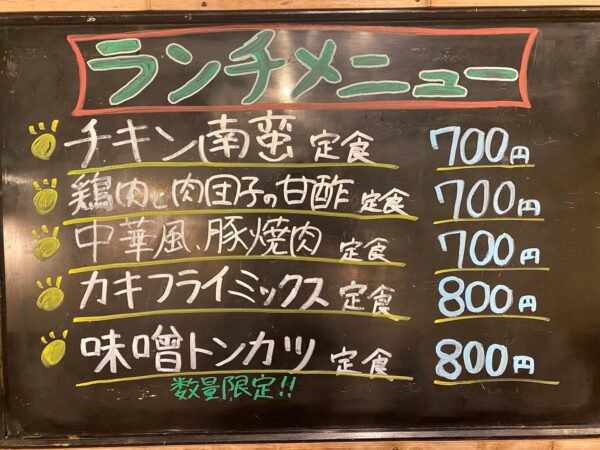 ランチメニュー
チキン南蛮 定食 700円
鶏肉と肉団子の甘酢 定食 700円
中華風、豚焼肉 定食 700円
カキフライミックス 定食 800円
味噌トンカツ 定食 800円
数量限定!!